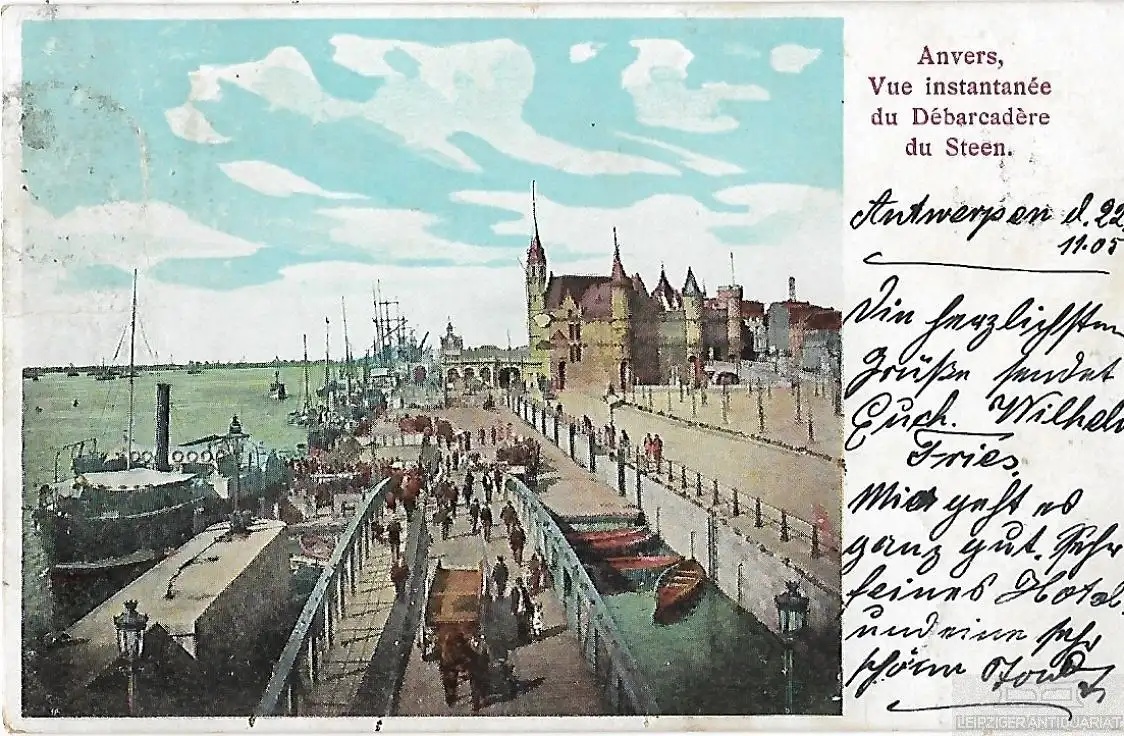 Anvers,
Vue instantanée
du Débarcadère
du Steen.
Antwerpen d. 22.
11.05
Die herzlichsten
Grüße sendet
Euch. Wilhelm
Fries.
Mir geht es
ganz gut. Sehr
feines Hotel,
und eine sehr
schöne Stadt
LEIPZIGER ANTIQUARIAT